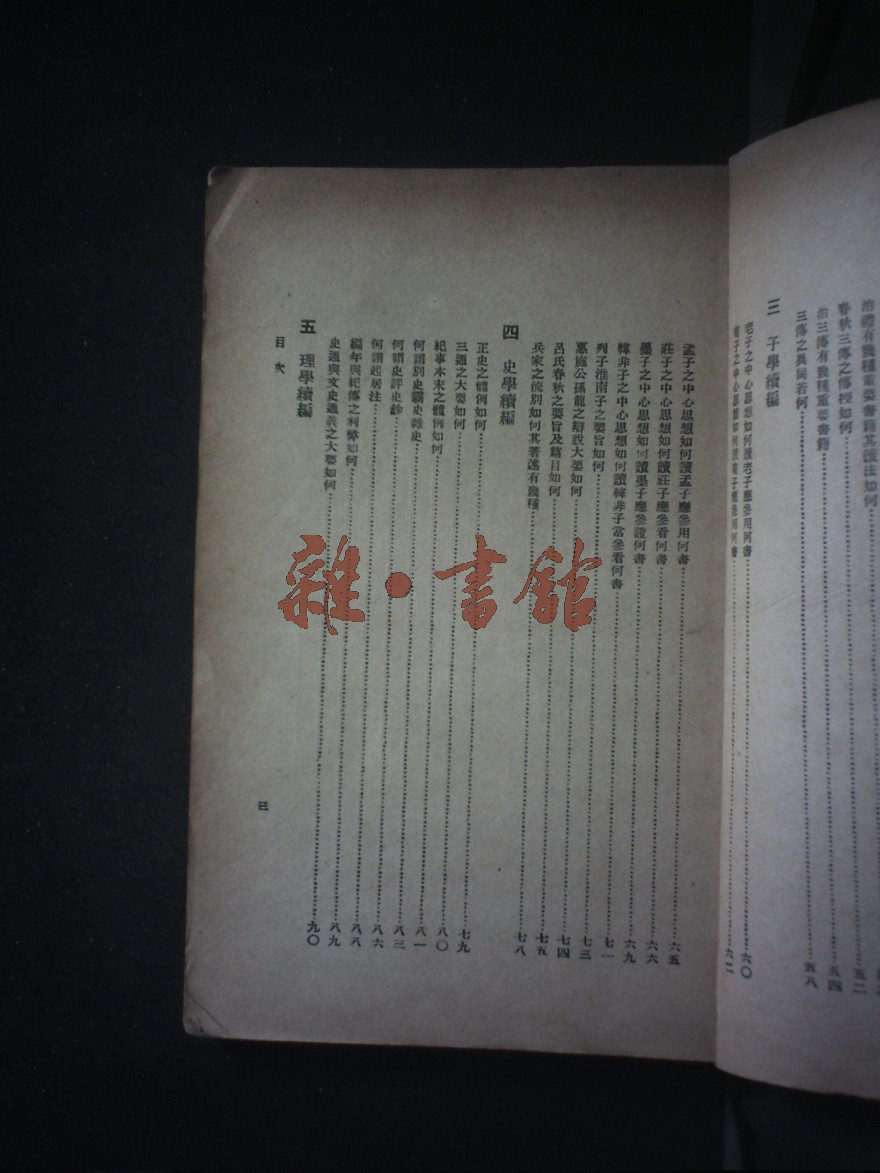 治禮有幾種重要書籍其讀法如何
春秋三傳之傳授如何……五二
治三傳有幾種重要書籍……五四
三傳之異同若何……五八
三 子學續編
老子之中心思想如何讀老子應參用何書……六〇
荀子之中心思想如何讀荀子應參用何書……六二
孟子之中心思想如何讀孟子應參用何書……六五
莊子之中心思想如何讀莊子應參看何書……六六
墨子之中心思想如何讀墨子應參證何書……六九
韓非子之中心思想如何讀韓非子當參看何書……七一
列子淮南子之要旨如何……七三
惠施公孫龍之辯說大要如何……七四
呂氏春秋之要旨及篇目如何……七五
兵家之流別如何其著述有幾種……七八
四 史學續編
正史之體例如何……七九
三通之大要如何……八〇
紀事本末之體例如何……八一
何謂別史霸史雜史……八三
何謂史評史鈔……八六
何謂起居注……八八
編年與紀傳之利弊如何……八九
史通與文史通義之大要如何……九〇
五 理學續編
目次
三
雜·書館